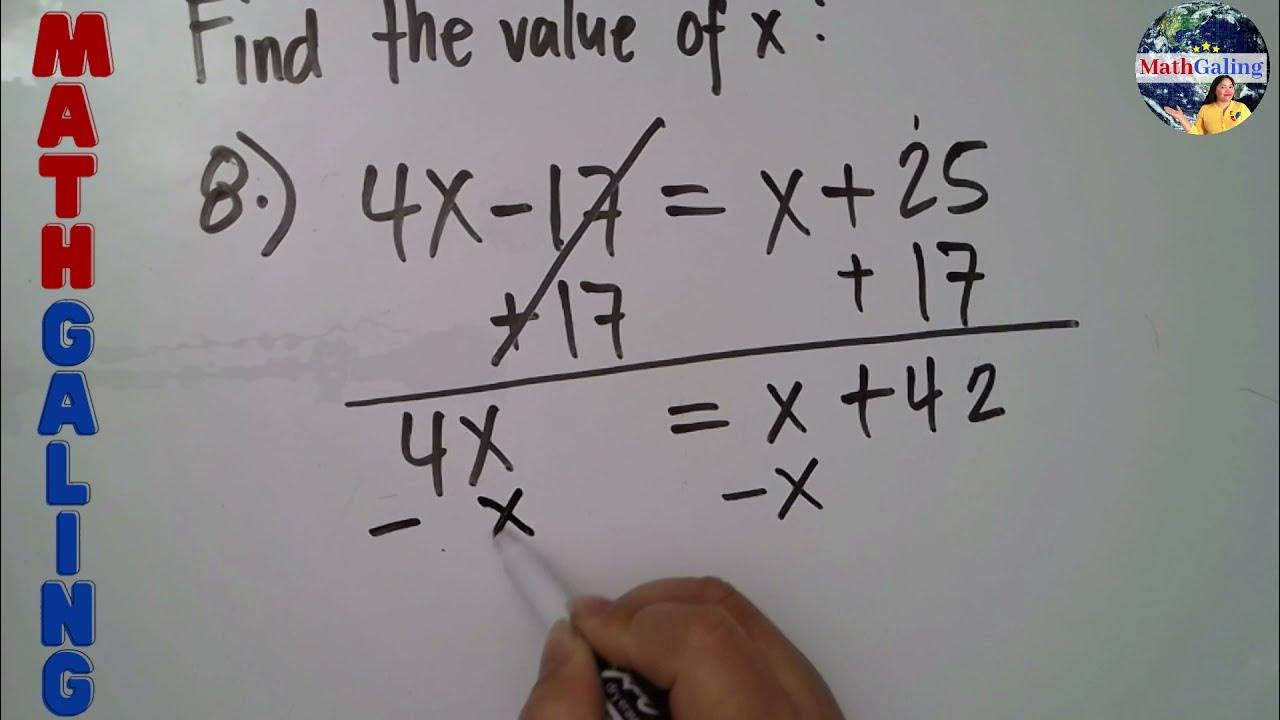 MATH GALING
MathGaling
Find the value of x:
8.) 4x - 17 = x + 25
+17 + 17
4x = x + 42
- x - x